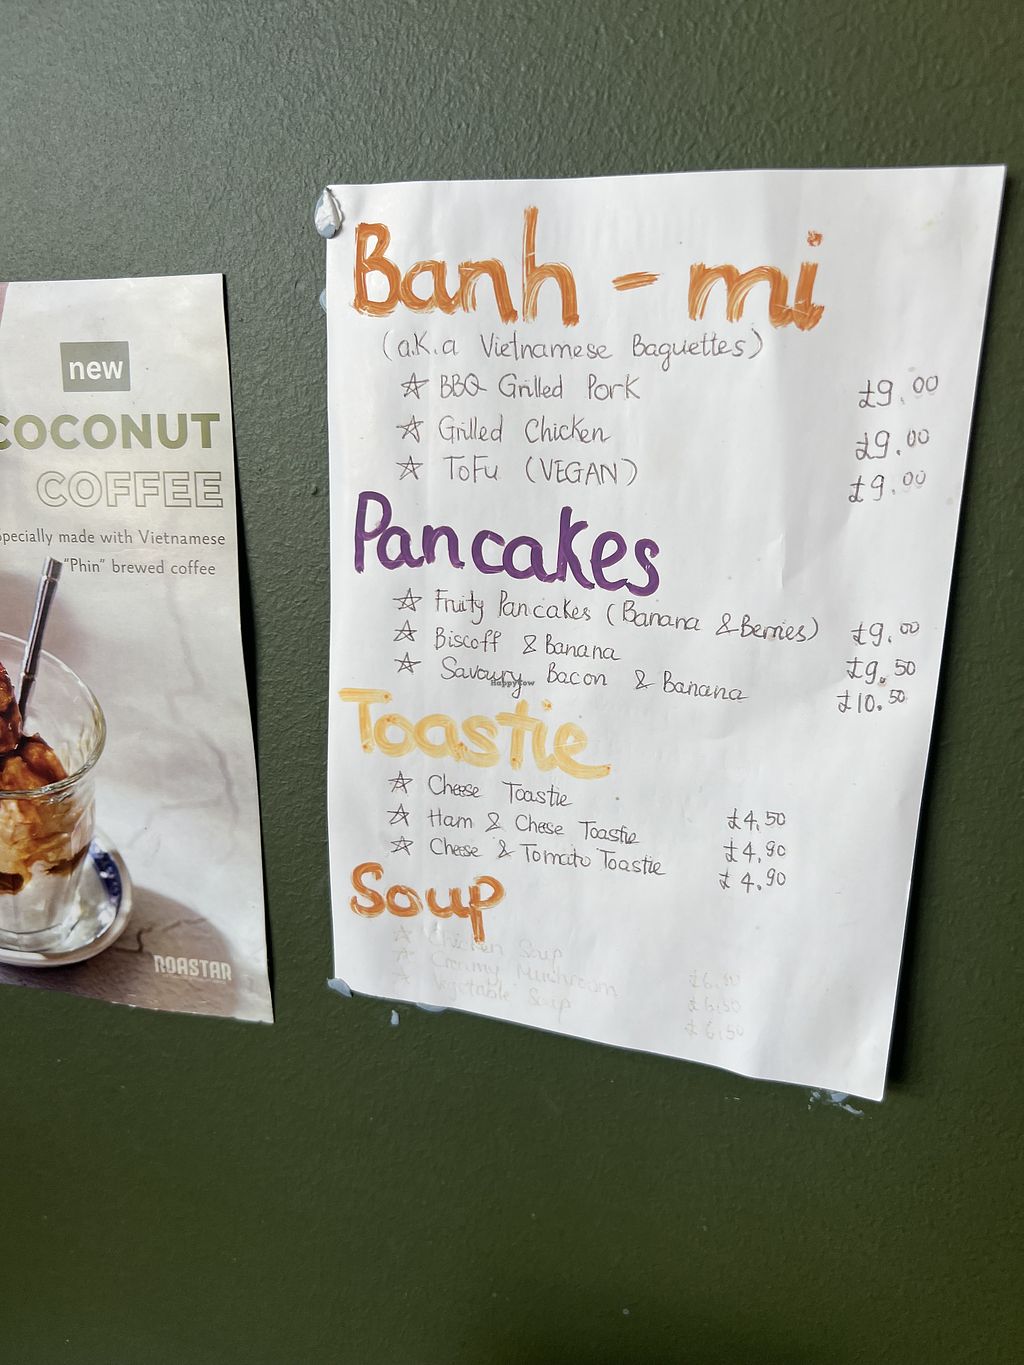 new
COCONUT
COFFEE
specially made with Vietnamese
"Phin" brewed coffee
ROASTAR
Banh - mi
(a.K.a Vietnamese Baguettes)
☆ BBQ Grilled Pork £9.00
☆ Grilled Chicken £9.00
☆ ToFu (VEGAN) £9.00
Pancakes
☆ Fruity Pancakes (Banana & Berries) £9.00
☆ Biscoff & Banana £9.50
☆ Savoury Bacon & Banana £10.50
HappyCow
Toastie
☆ Cheese Toastie £4.50
☆ Ham & Cheese Toastie £4.90
☆ Cheese & Tomato Toastie £4.90
Soup
☆ Chicken Soup £6.50
☆ Creamy Mushroom £6.50
☆ Vegetable Soup £6.50